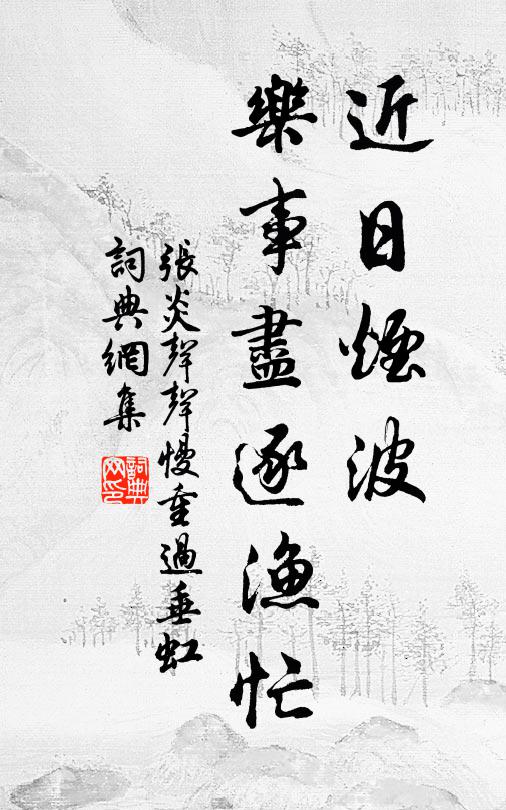 近日煙波
樂事盡逐漁忙
張炎聲聲慢重過垂虹
詞典網集
詞典网印